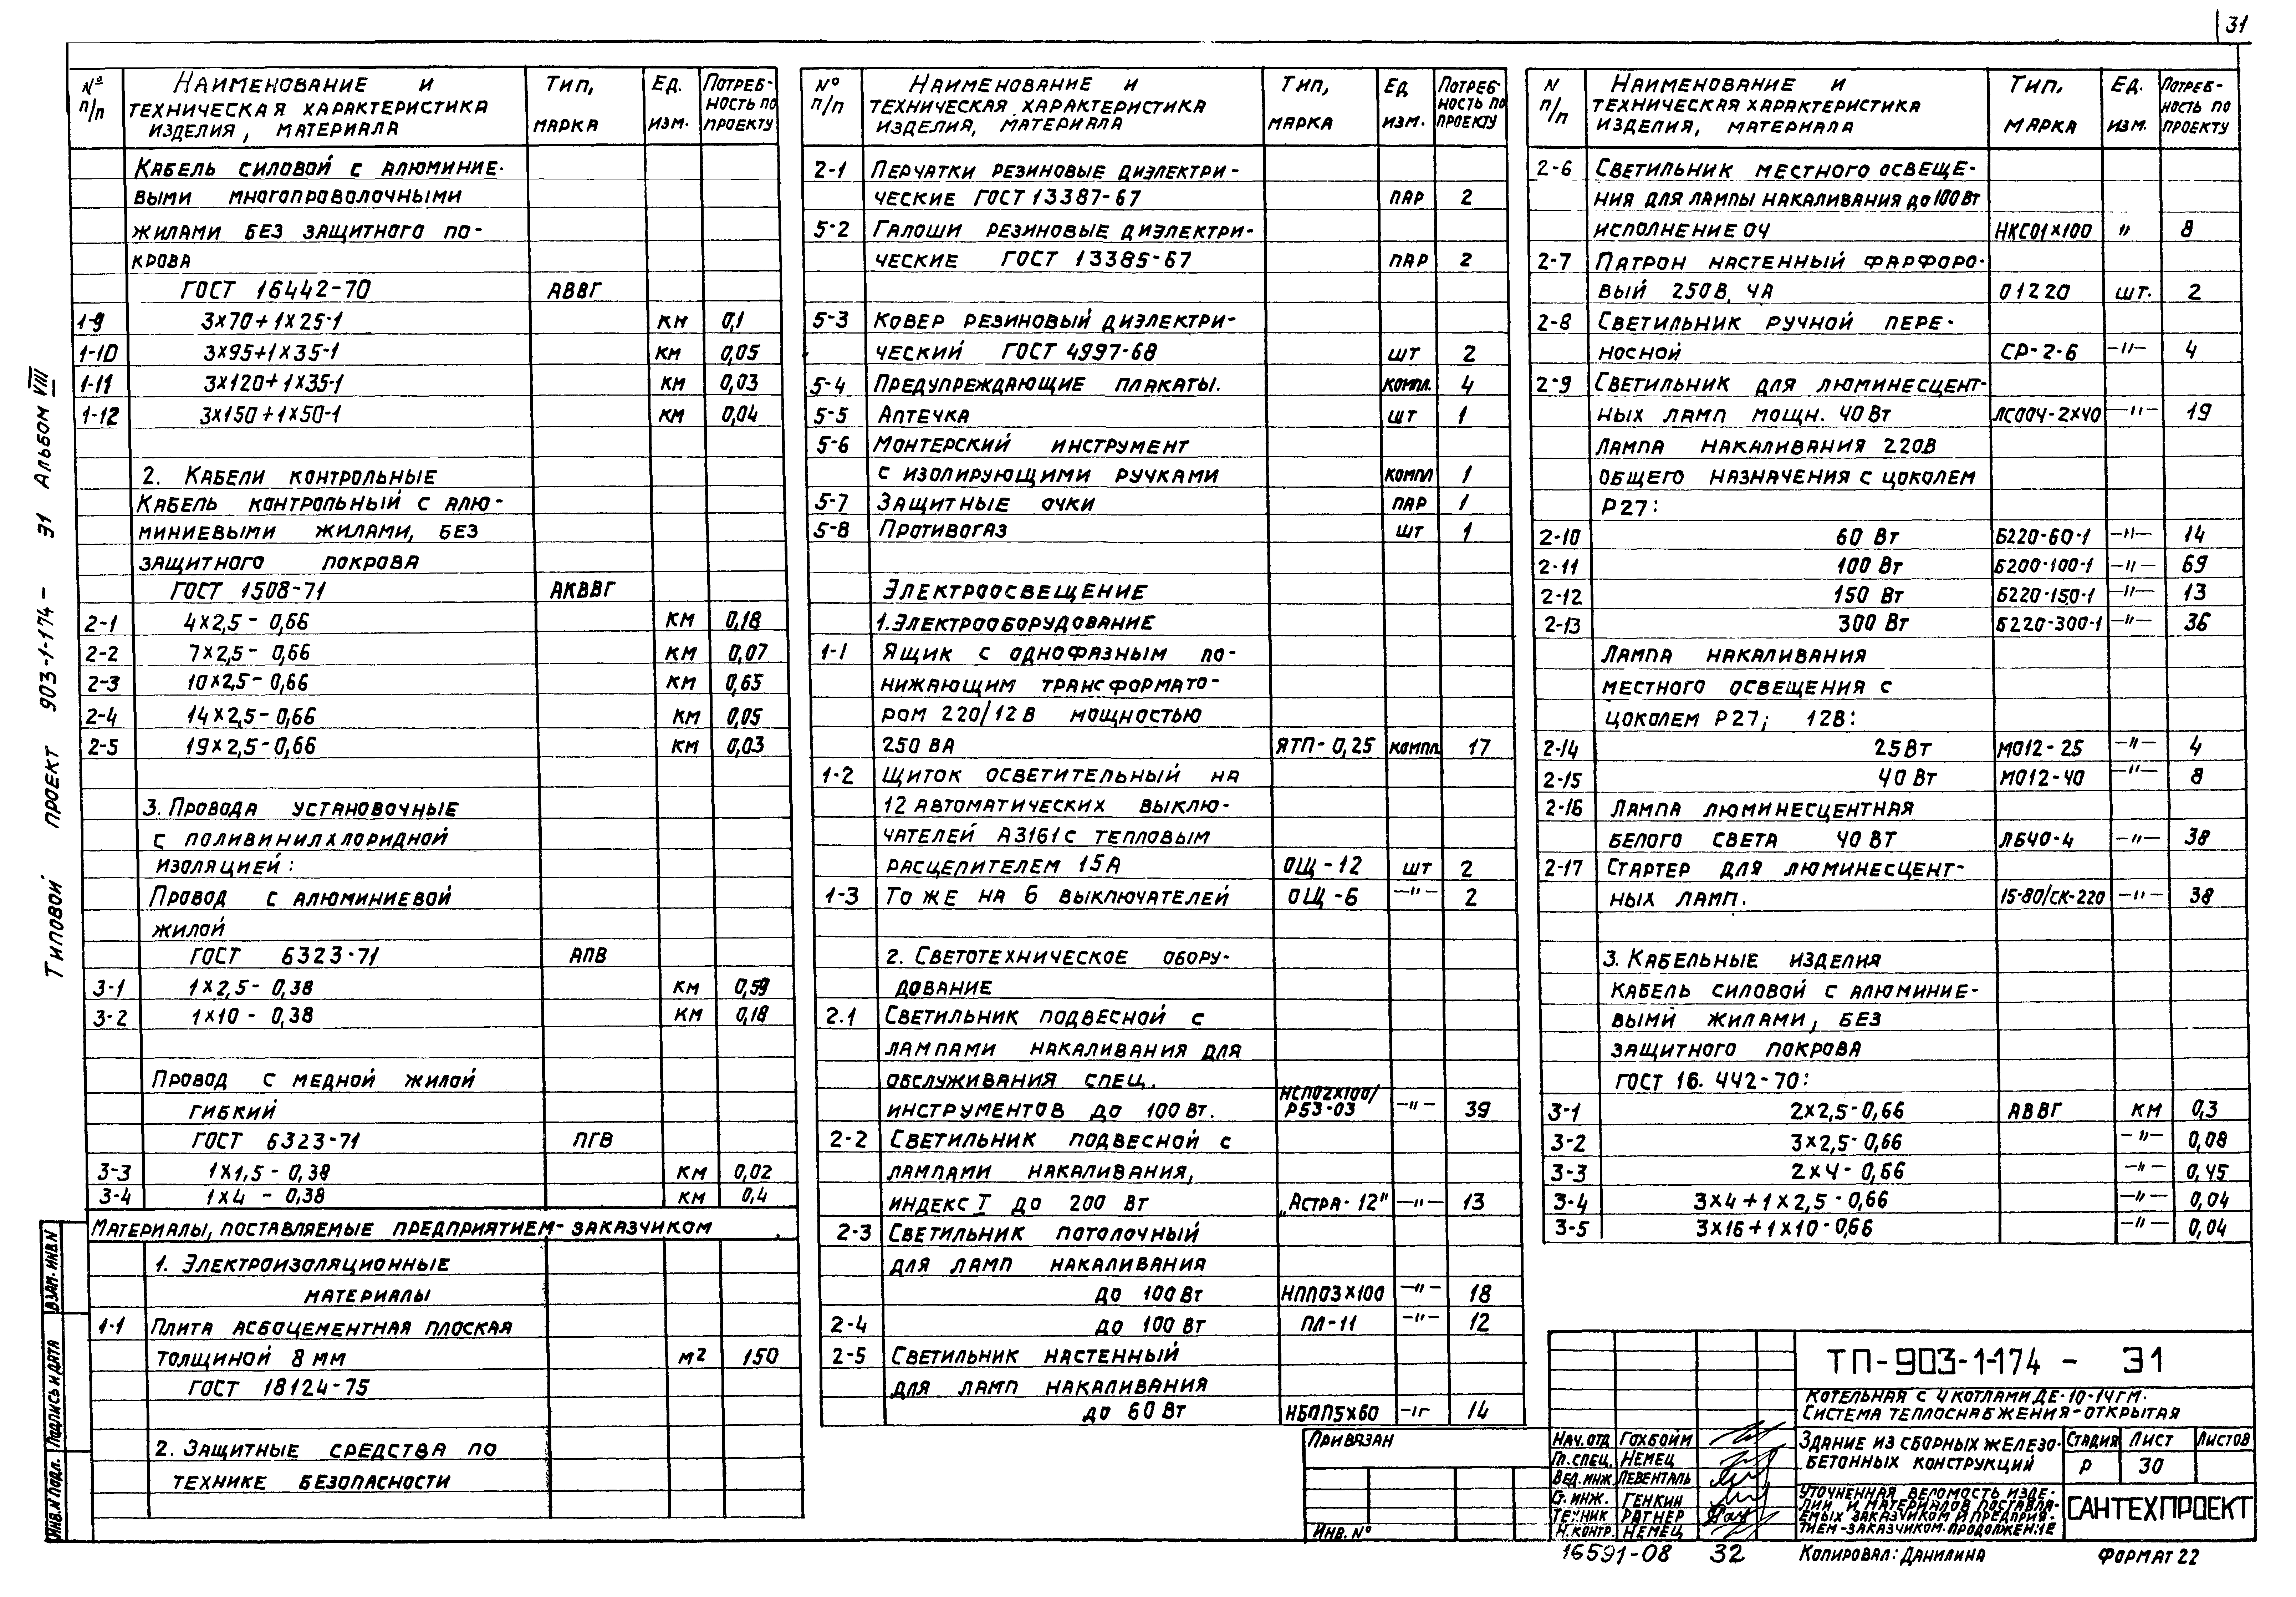 31
Типовой проект 903-1-174 - Э1 Альбом VIII
№ п/п | Наименование и техническая характеристика изделия, материала | Тип, марка | Ед. изм. | Потреб-ность по проекту
Кабель силовой с алюминие-
выми многопроволочными
жилами без защитного по-
крова
ГОСТ 16442-70 АВВГ
1-9 3×70+1×25-1 км 0,1
1-10 3×95+1×35-1 км 0,05
1-11 3×120+1×35-1 км 0,03
1-12 3×150+1×50-1 км 0,04
2. Кабели контрольные
Кабель контрольный с алю-
миниевыми жилами, без
защитного покрова
ГОСТ 1508-71 АКВВГ
2-1 4×2,5-0,66 км 0,18
2-2 7×2,5-0,66 км 0,07
2-3 10×2,5-0,66 км 0,65
2-4 14×2,5-0,66 км 0,05
2-5 19×2,5-0,66 км 0,03
3. Провода установочные
с поливинилхлоридной
изоляцией:
Провод с алюминиевой
жилой
ГОСТ 6323-71 АПВ
3-1 1×2,5-0,38 км 0,59
3-2 1×10-0,38 км 0,18
Провод с медной жилой
гибкий
ГОСТ 6323-71 ПГВ
3-3 1×1,5-0,38 км 0,02
3-4 1×4-0,38 км 0,4
Материалы, поставляемые предприятием-заказчиком
1. Электроизоляционные
материалы
1-1 Плита асбоцементная плоская
толщиной 8 мм м2 150
ГОСТ 18124-75
2. Защитные средства по
технике безопасности
№ п/п | Наименование и техническая характеристика изделия, материала | Тип, марка | Ед изм. | Потреб-ность по проекту
2-1 Перчатки резиновые диэлектри-
ческие ГОСТ 13387-67 пар 2
5-2 Галоши резиновые диэлектри-
ческие ГОСТ 13385-67 пар 2
5-3 Ковер резиновый диэлектри-
ческий ГОСТ 4997-68 шт 2
5-4 Предупреждающие плакаты. компл. 4
5-5 Аптечка шт 1
5-6 Монтерский инструмент
с изолирующими ручками компл 1
5-7 Защитные очки пар 1
5-8 Противогаз шт 1
Электроосвещение
1. Электрооборудование
1-1 Ящик с однофазным по-
нижающим трансформато-
ром 220/12 В мощностью
250 ВА ЯТП-0,25 компл 17
1-2 Щиток осветительный на
12 автоматических выклю-
чателей А3161 с тепловым
расцепителем 15А ОЩ-12 шт 2
1-3 То же на 6 выключателей ОЩ-6 —"— 2
2. Светотехническое обору-
дование
2.1 Светильник подвесной с
лампами накаливания для
обслуживания спец.
инструментов до 100 Вт. НСП02×100/Р53-03 —"— 39
2-2 Светильник подвесной с
лампами накаливания,
индекс I до 200 Вт „Астра-12" —"— 13
2-3 Светильник потолочный
для ламп накаливания
до 100 Вт НПП03×100 —"— 18
2-4 до 100 Вт ПЛ-11 —"— 12
2-5 Светильник настенный
для ламп накаливания
до 60 Вт НБПП5×60 —"— 14
N п/п | Наименование и техническая характеристика изделия, материала | Тип. марка | Ед. изм. | Потреб-ность по проекту
2-6 Светильник местного освеще-
ния для лампы накаливания до 100 Вт
исполнение 04 НКС01×100 " 8
2-7 Патрон настенный фарфоро-
вый 250В, 4А 01220 шт. 2
2-8 Светильник ручной пере-
носной СР-2-6 —"— 4
2-9 Светильник для люминесцент-
ных ламп мощн. 40 Вт ЛС004-2×40 —"— 19
Лампа накаливания 220В
общего назначения с цоколем
Р27:
2-10 60 Вт Б220-60-1 —"— 14
2-11 100 Вт Б200-100-1 —"— 69
2-12 150 Вт Б220-150-1 —"— 13
2-13 300 Вт Б220-300-1 —"— 36
Лампа накаливания
местного освещения с
цоколем Р27; 12В:
2-14 25 Вт МО12-25 —"— 4
2-15 40 Вт МО12-40 —"— 8
2-16 Лампа люминесцентная
белого света 40 Вт ЛБ40-4 —"— 38
2-17 Стартер для люминесцент-
ных ламп. 15-80/СК-220 —"— 38
3. Кабельные изделия
Кабель силовой с алюминие-
выми жилами, без
защитного покрова
ГОСТ 16.442-70:
3-1 2×2,5-0,66 АВВГ км 0,3
3-2 3×2,5-0,66 —"— 0,08
3-3 2×4-0,66 —"— 0,45
3-4 3×4+1×2,5-0,66 —"— 0,04
3-5 3×16+1×10-0,66 —"— 0,04
Взам. инв. N
Подпись и дата
Инв. N подл.
Привязан
Инв. №
Нач. отд Гохбойм
Гл. спец. Немец
Вед. инж. Левенталь
Ст. инж. Генкин
Техник Ратнер
Н. контр. Немец
ТП-903-1-174 - Э1
Котельная с 4 котлами ДЕ-10-14ГМ.
Система теплоснабжения-открытая
Здание из сборных железо-
бетонных конструкций
Стадия Лист Листов
Р 30
Уточненная ведомость изде-
лий и материалов поставля-
емых заказчиком и предприя-
тием-заказчиком. Продолжение
САНТЕХПРОЕКТ
16591-08 32
Копировал: Данилина
Формат 22